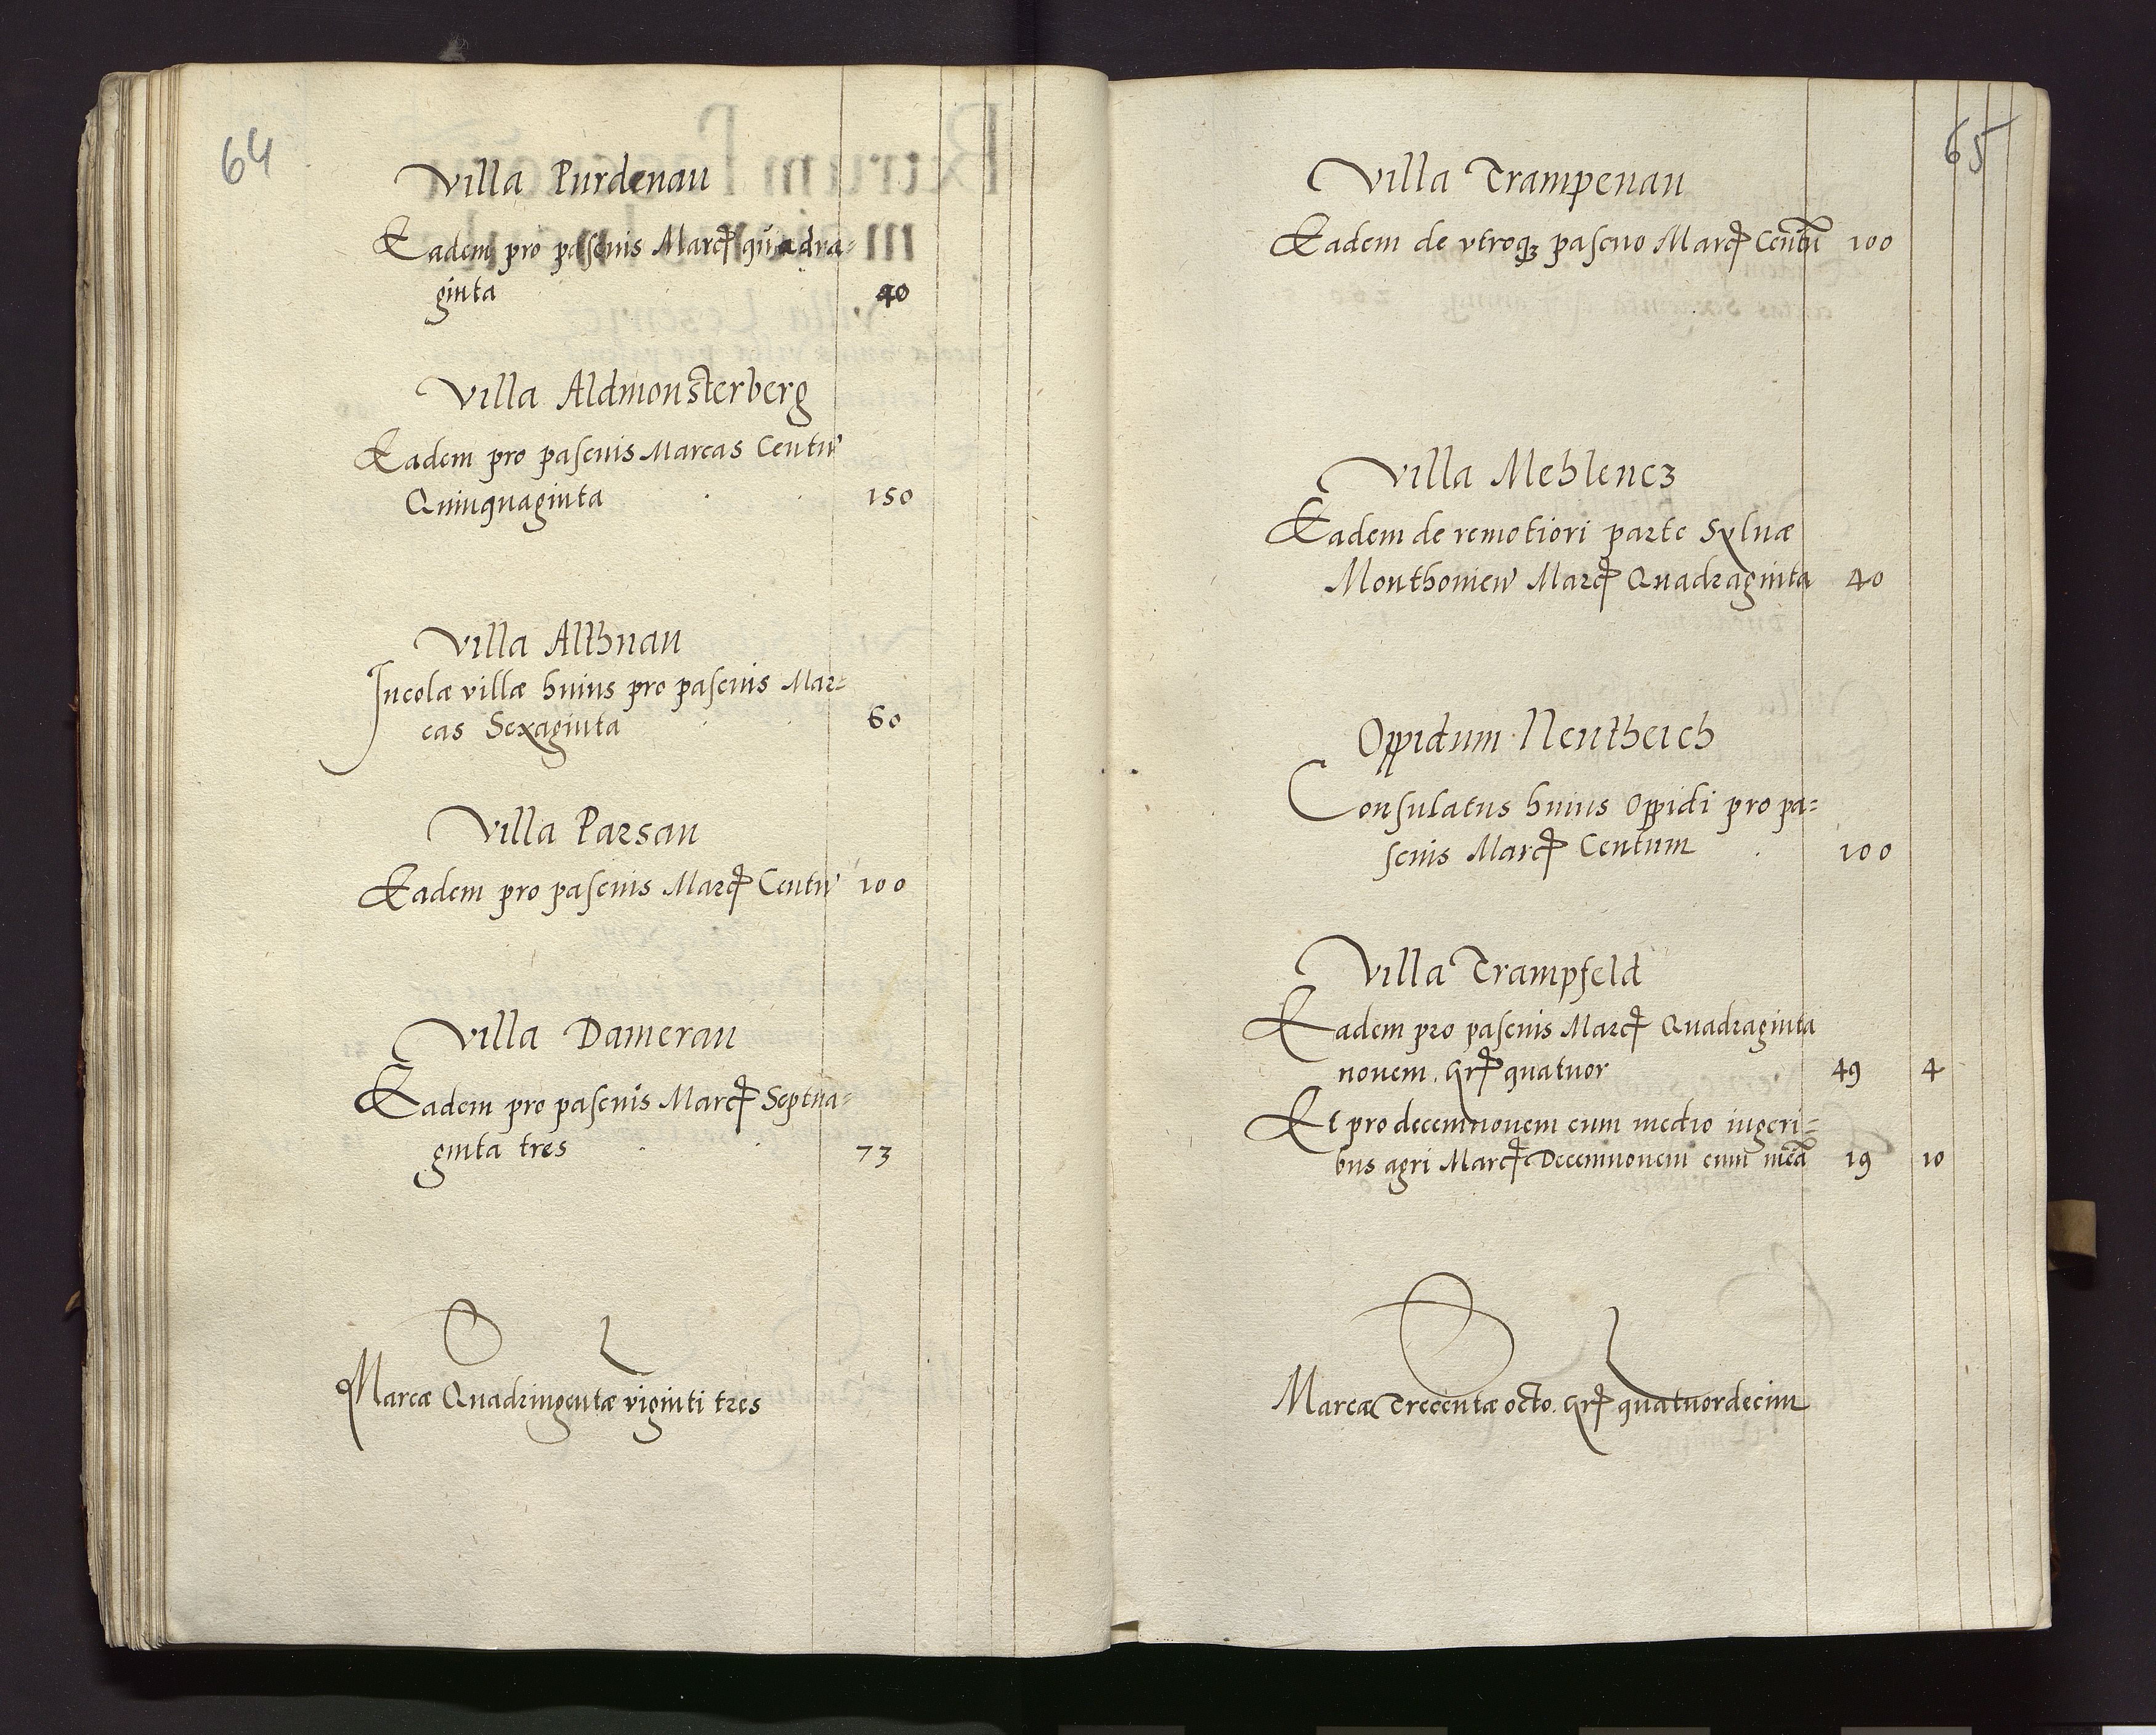 64
Villa Purdenau
Eadem pro pascuis Marcꝭ quadra⸗
ginta 40
Villa Aldmonsterberg
Eadem pro pascuis Marcas Centū
Quinquaginta 150
Villa Althnau
Incolæ villæ huius pro pascuis Mar⸗
cas Sexaginta 60
Villa Parsau
Eadem pro pascuis Marcꝭ Centū 100
Villa Damerau
Eadem pro pascuis Marcꝭ Septua⸗
ginta tres 73
Marcæ Quadringentæ viginti tres
65
Villa Trampenau
Eadem de vtroqꝫ pascuo Marcꝭ Centū 100
Villa Mehlencz
Eadem de remotiori parte Syluæ
Monthoniew Marcꝭ Quadraginta 40
Oppidum Neutheich
Consulatus huius Oppidi pro pa⸗
scuis Marcꝭ Centum 100
Villa Trampfeld
Eadem pro pascuis Marcꝭ Quadraginta
nouem. grꝭ quatuor 49 4
Et pro decemnouem cum medio iugeri⸗
bus agri Marcꝭ Decemnouem cum meā 19 10
Marcæ Trecentæ octo. grꝭ quatuordecim